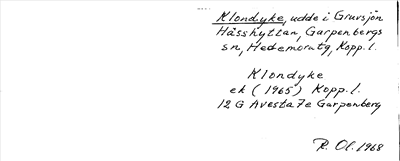 Klondyke, udde i Grursjön
Hässhyttan, Garpenbergs
sn, Hedemora tg, Kopp. l.
Klondyke
ek (1965) Kopp. l.
12 G Avesta 7e Garpenberg
R. Ol. 1968